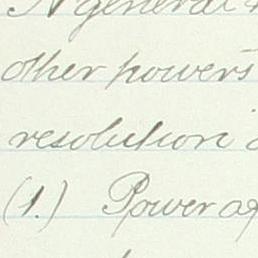 A general
other powers
resolution
(1.) Power